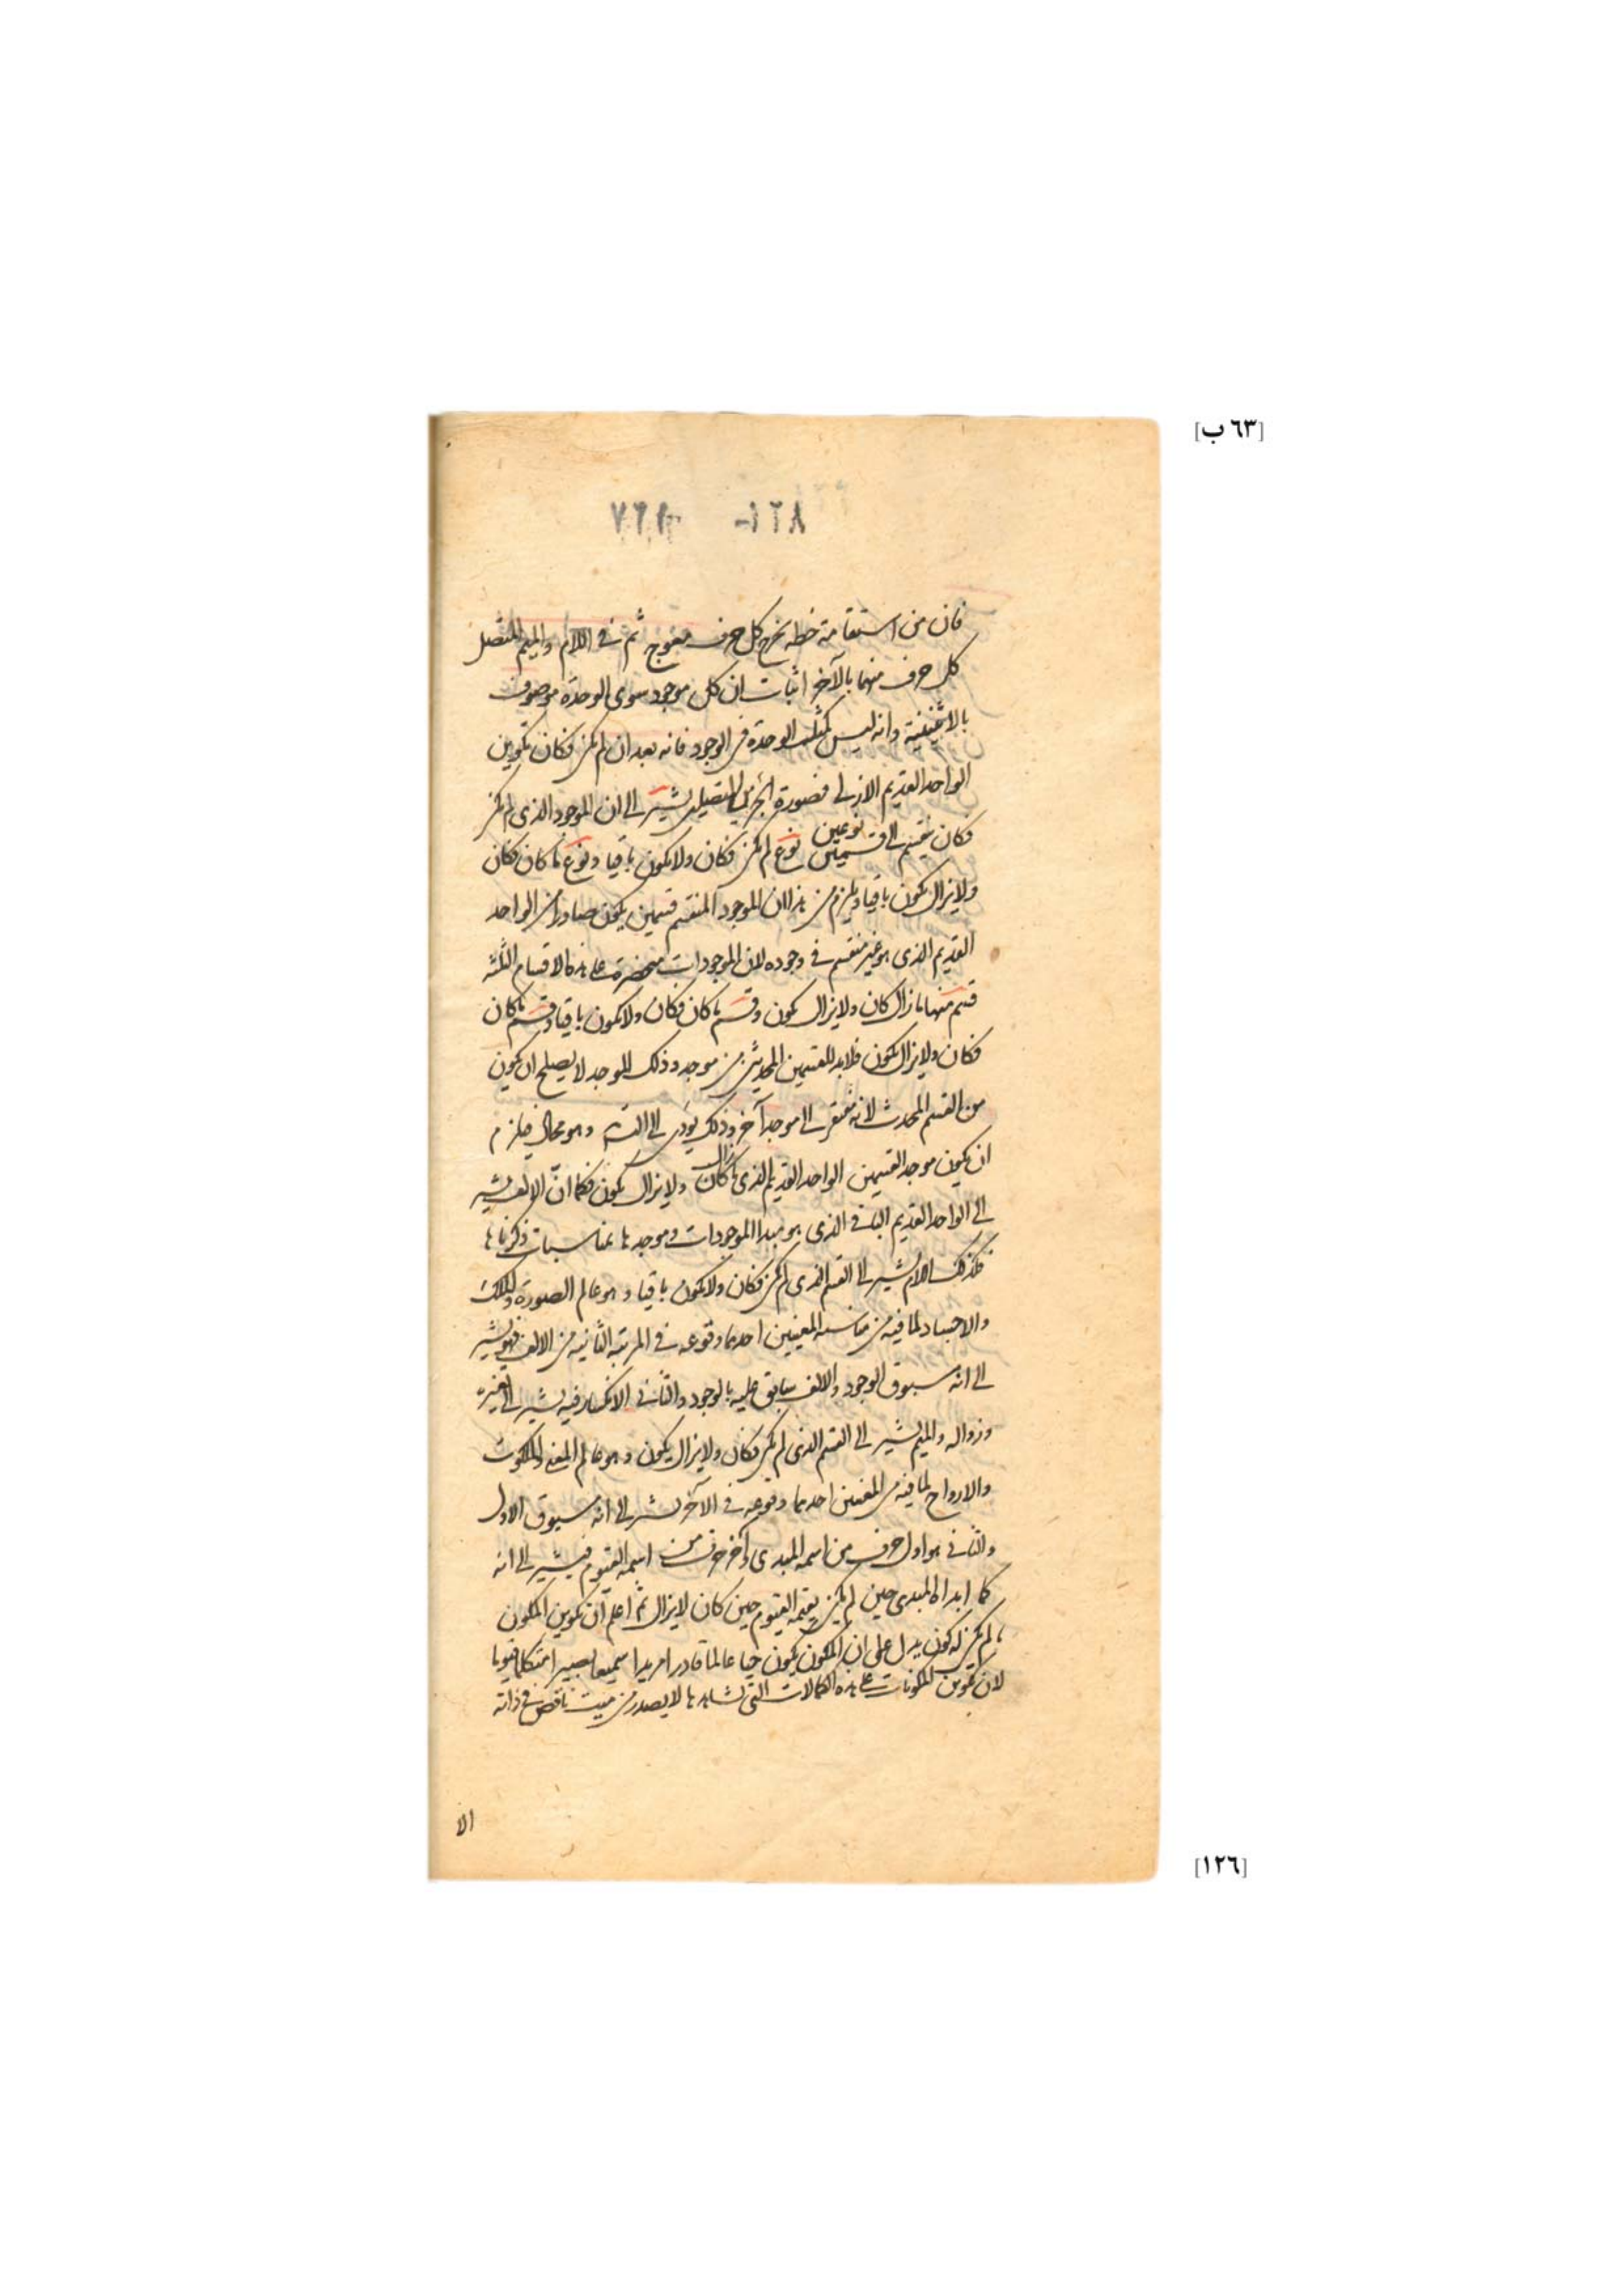 [٦٣ ب]
فان من استقامة خطه يخرج كل حرف معوج ثم في اللام والميم المتصل
كل حرف منهما بالآخر اثبات ان كل موجود سوى الوحدة موصوف
بالاثنينية وانه ليس كمثله الوحدة في الوجود فانه بعد ان لم يكن فكان بتكوين
الواحد القديم الازلي فصورة المتصلين تشير الى ان الموجود الذي لم يكن
فكان ينقسم الى قسمين نوعين نوع لم يكن فكان ولا يكون باقيا ونوع ما كان فكان
ولا يزال يكون باقيا ويلزم من هذا ان الموجود المنقسم قسمين يكون صادرا من الواحد
القديم الذي هو غير منقسم في وجوده لان الموجودات منحصرة على هذه الاقسام الثلثة
قسم منها ما زال كان ولا يزال يكون وقسم ما كان فكان ولا يكون باقيا وقسم ما كان
فكان ولا يزال يكون فلابد للقسمين المحدثين من موجد وذلك الموجد لا يصلح ان يكون
من القسم المحدث لانه مفتقر الى موجد آخر وذلك يؤدي الى التسـ وهو محال فيلزم
ان يكون موجد القسمين الواحد القديم الذي ما زال كان ولا يزال يكون فكما ان الالف يشير
الى الواحد القديم الباقي الذي هو مبدا الموجودات وموجدها بمناسبات ذكرناها
فكذلك اللام يشير الى القسم الذي لم يكن فكان ولا يكون باقيا وهو عالم الصورة والملك
والاجساد لما فيه من مناسبة المعنيين احدهما وقوعه في المرتبة الثانية من الالف فهو يشير
الى انه مسبوق الوجود والالف سابق عليه بالوجود والثاني الانكسار فيه يشير الى تغيره
وزواله والميم يشير الى القسم الذي لم يكن فكان ولا يزال يكون وهو عالم المعنى والملكوت
والارواح لما فيه من المعنيين احدهما وقوعه في الآخر يشير الى انه مسبوق الاول
والثاني هو اول حرف من اسمه المبدي وآخر حرف من اسمه القيوم فيشير الى انه
كما ابداه المبدي حين لم يكن يقيمه القيوم حين كان لا يزال ثم اعلم ان تكوين المكون
ما لم يكن له كون يدل على ان المكون يكون حيا عالما قادرا مريدا سميعا بصيرا متكلما قيوما
لان تكوين المكونات على هذه الكمالات التي نشاهدها لا يصدر من ميت ناقص في ذاته
الا
[١٢٦]